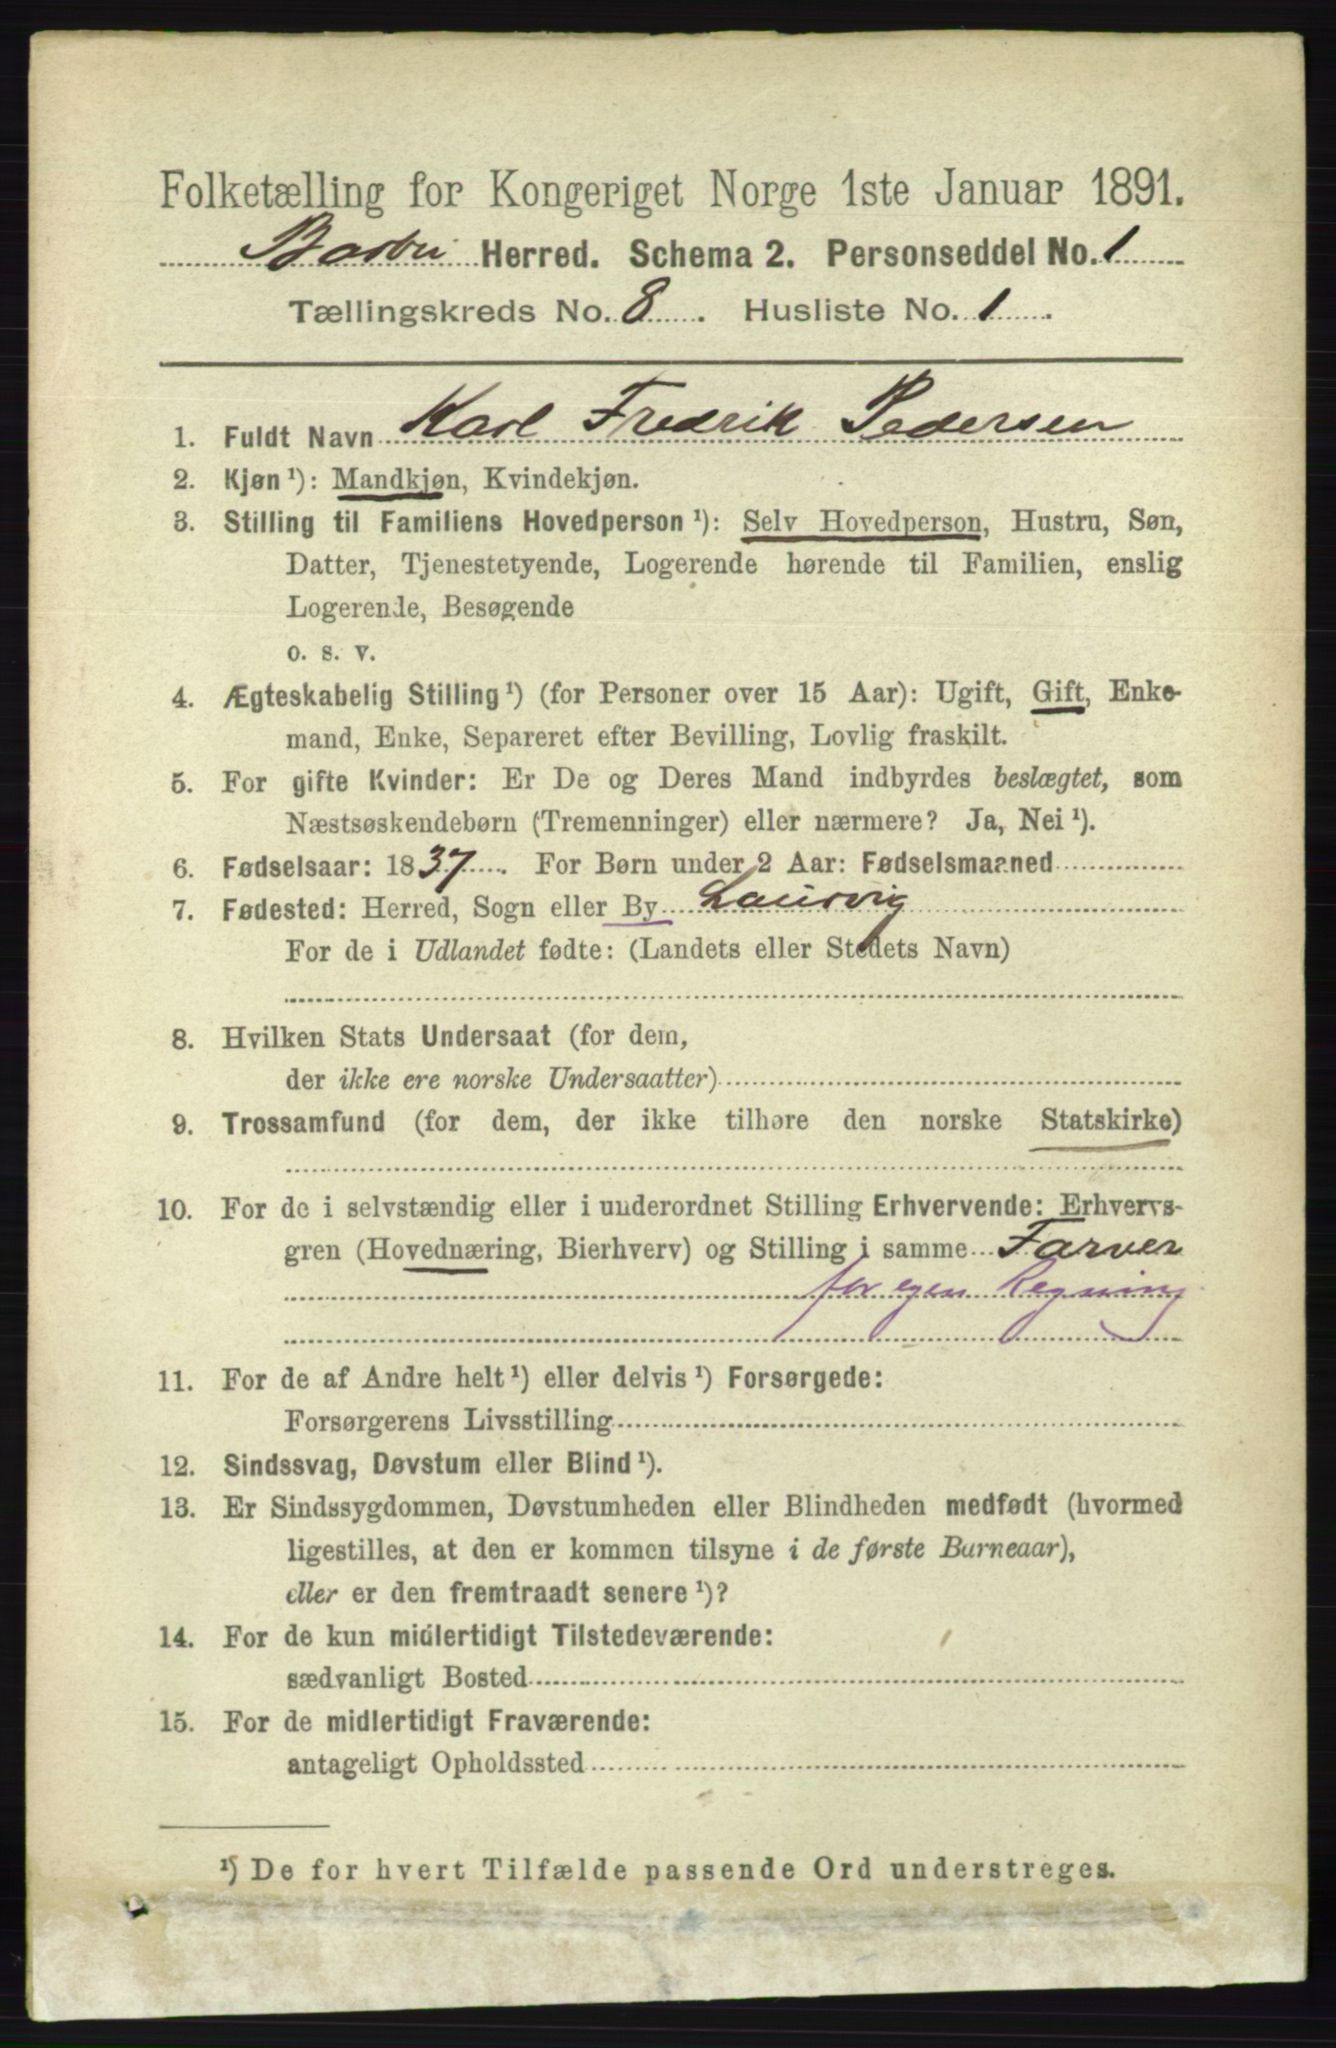 Folketælling for Kongeriget Norge 1ste Januar 1891.
Barbu Herred. Schema 2. Personseddel No. 1
Tællingskreds No. 8. Husliste No. 1.
1. Fuldt Navn Karl Fredrik Pedersen
2. Kjøn ¹): Mandkjøn, Kvindekjøn.
3. Stilling til Familiens Hovedperson ¹): Selv Hovedperson, Hustru, Søn,
Datter, Tjenestetyende, Logerende hørende til Familien, enslig
Logerende, Besøgende
o. s. v.
4. Ægteskabelig Stilling ¹) (for Personer over 15 Aar): Ugift, Gift, Enke-
mand, Enke, Separeret efter Bevilling, Lovlig fraskilt.
5. For gifte Kvinder: Er De og Deres Mand indbyrdes beslægtet, som
Næstsøskendebørn (Tremenninger) eller nærmere? Ja, Nei ¹).
6. Fødselsaar: 1837. For Børn under 2 Aar: Fødselsmaaned
7. Fødested: Herred, Sogn eller By Laurvig
For de i Udlandet fødte: (Landets eller Stedets Navn)
8. Hvilken Stats Undersaat (for dem,
der ikke ere norske Undersaatter)
9. Trossamfund (for dem, der ikke tilhøre den norske Statskirke)
10. For de i selvstændig eller i underordnet Stilling Erhvervende: Erhvervs-
gren (Hovednæring, Bierhverv) og Stilling i samme Farver
for egen Regning
11. For de af Andre helt ¹) eller delvis ¹) Forsørgede:
Forsørgerens Livsstilling
12. Sindssvag, Døvstum eller Blind ¹).
13. Er Sindssygdommen, Døvstumheden eller Blindheden medfødt (hvormed
ligestilles, at den er kommen tilsyne i de første Barneaar),
eller er den fremtraadt senere ¹)?
14. For de kun midlertidigt Tilstedeværende:
sædvanligt Bosted
15. For de midlertidigt Fraværende:
antageligt Opholdssted
¹) De for hvert Tilfælde passende Ord understreges.